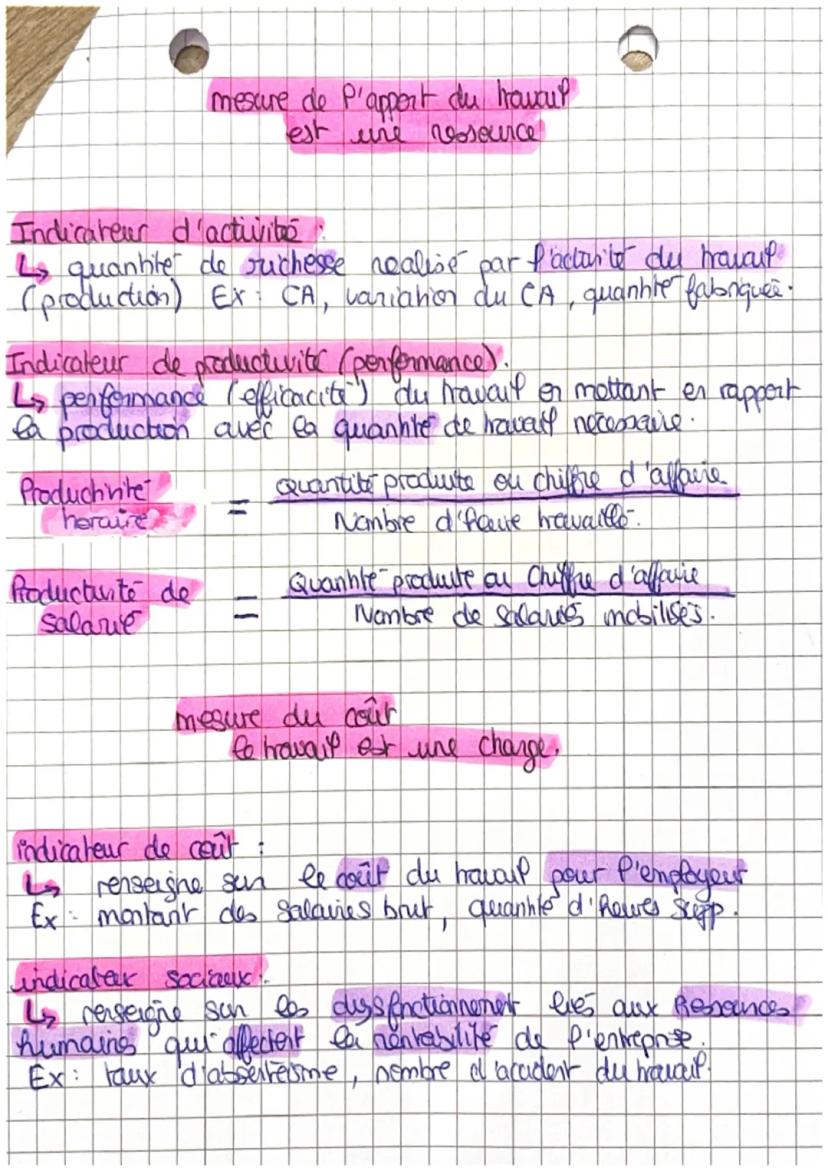 mesure de l'apport du travail
est une ressource
Indicateur d'activité :
↳ quantité de richesse realisé par l'activité du travail
(production) Ex : CA, variation du CA, quantité fabriquée.
Indicateur de productivité (performance).
↳ performance (efficacité) du travail en mettant en rapport
la production avec la quantité de travail nécessaire.
Productivité
horaire = Quantité produite ou chiffre d'affaire
Nombre d'heure travaillé.
Productivité de
salarié = Quantité produite ou Chiffre d'affaire
Nombre de salariés mobilisés.
mesure du coût
le travail est une charge.
indicateur de coût :
↳ renseigne sur le coût du travail pour l'employeur
Ex : montant des salaires brut, quantité d'heures supp.
indicateur sociaux :
↳ renseigne sur les dyssfnctionnement liés aux Ressources
humaines qui affectent la rentabilité de l'entreprise.
Ex : taux d'absenteisme, nombre d'accident du travail.